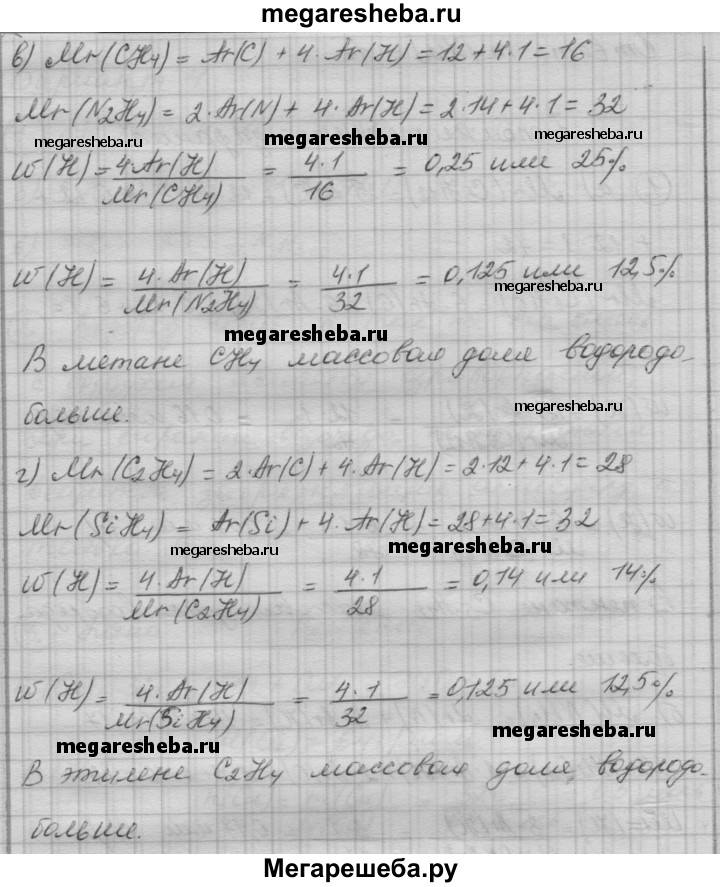 megaresheba.ru
в) Mr(CH₄) = Ar(C) + 4·Ar(H) = 12 + 4·1 = 16
Mr(N₂H₄) = 2·Ar(N) + 4·Ar(H) = 2·14 + 4·1 = 32
megaresheba.ru megaresheba.ru megaresheba.ru
w(H) = 4·Ar(H) / Mr(CH₄) = 4·1 / 16 = 0,25 или 25%
w(H) = 4·Ar(H) / Mr(N₂H₄) = 4·1 / 32 = 0,125 или 12,5%
megaresheba.ru
megaresheba.ru
В метане CH₄ массовая доля водородо-
больше.
megaresheba.ru
г) Mr(C₂H₄) = 2·Ar(C) + 4·Ar(H) = 2·12 + 4·1 = 28
Mr(SiH₄) = Ar(Si) + 4·Ar(H) = 28 + 4·1 = 32
megaresheba.ru megaresheba.ru
w(H) = 4·Ar(H) / Mr(C₂H₄) = 4·1 / 28 = 0,14 или 14%
w(H) = 4·Ar(H) / Mr(SiH₄) = 4·1 / 32 = 0,125 или 12,5%
megaresheba.ru megaresheba.ru
В этилене C₂H₄ массовая доля водородо-
больше.
Мегарешеба.ру